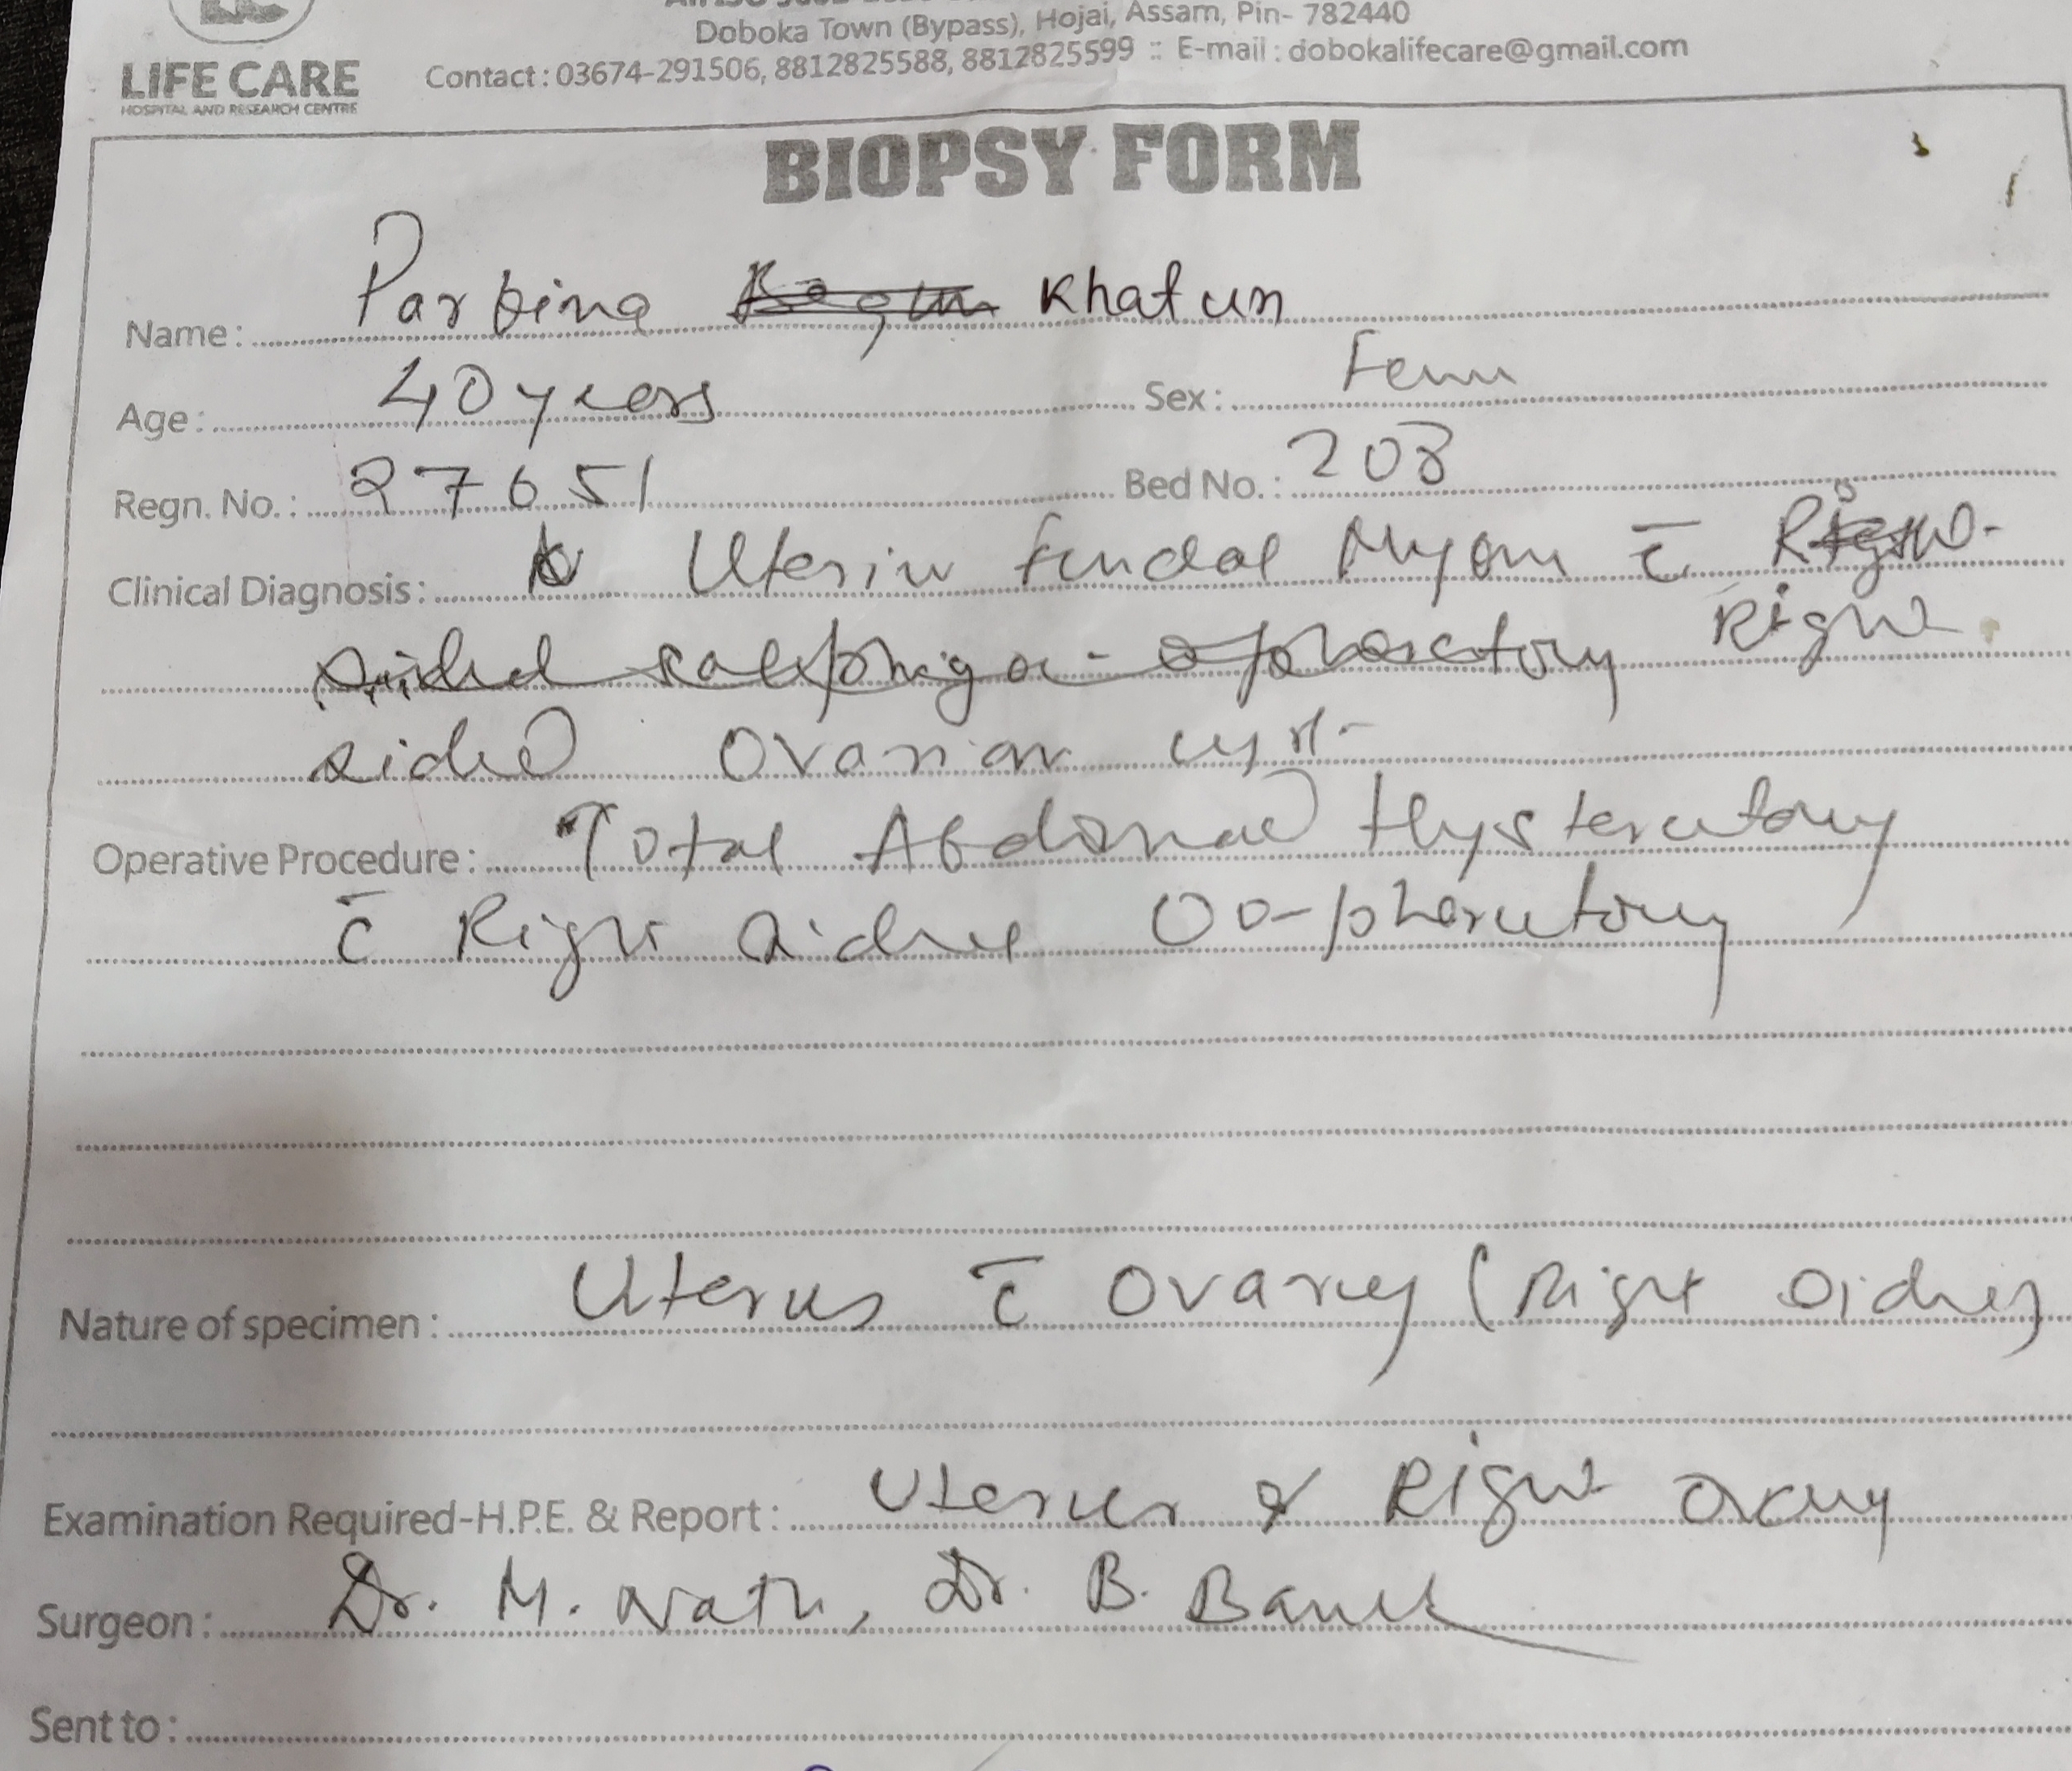 Doboka Town (Bypass), Hojai, Assam, Pin- 782440
LIFE CARE
HOSPITAL AND RESEARCH CENTRE
Contact : 03674-291506, 8812825588, 8812825599 :: E-mail : dobokalifecare@gmail.com
BIOPSY FORM
Name : Parbina Begum Khatun
Age : 40 years Sex : Fem
Regn. No. : 27651 Bed No. : 203
Clinical Diagnosis : Uterin fundal Myom c̄ Right
sided salphigo-ophorectomy Right
sided ovarian cyst
Operative Procedure : Total Abdominal Hysterectomy
c̄ Right sided Oo-phorectomy
Nature of specimen : Uterus c̄ ovarey (Right sided)
Examination Required-H.P.E. & Report : Uterus & Right ovary
Surgeon : Dr. M. Nath, Dr. B.
Sent to :